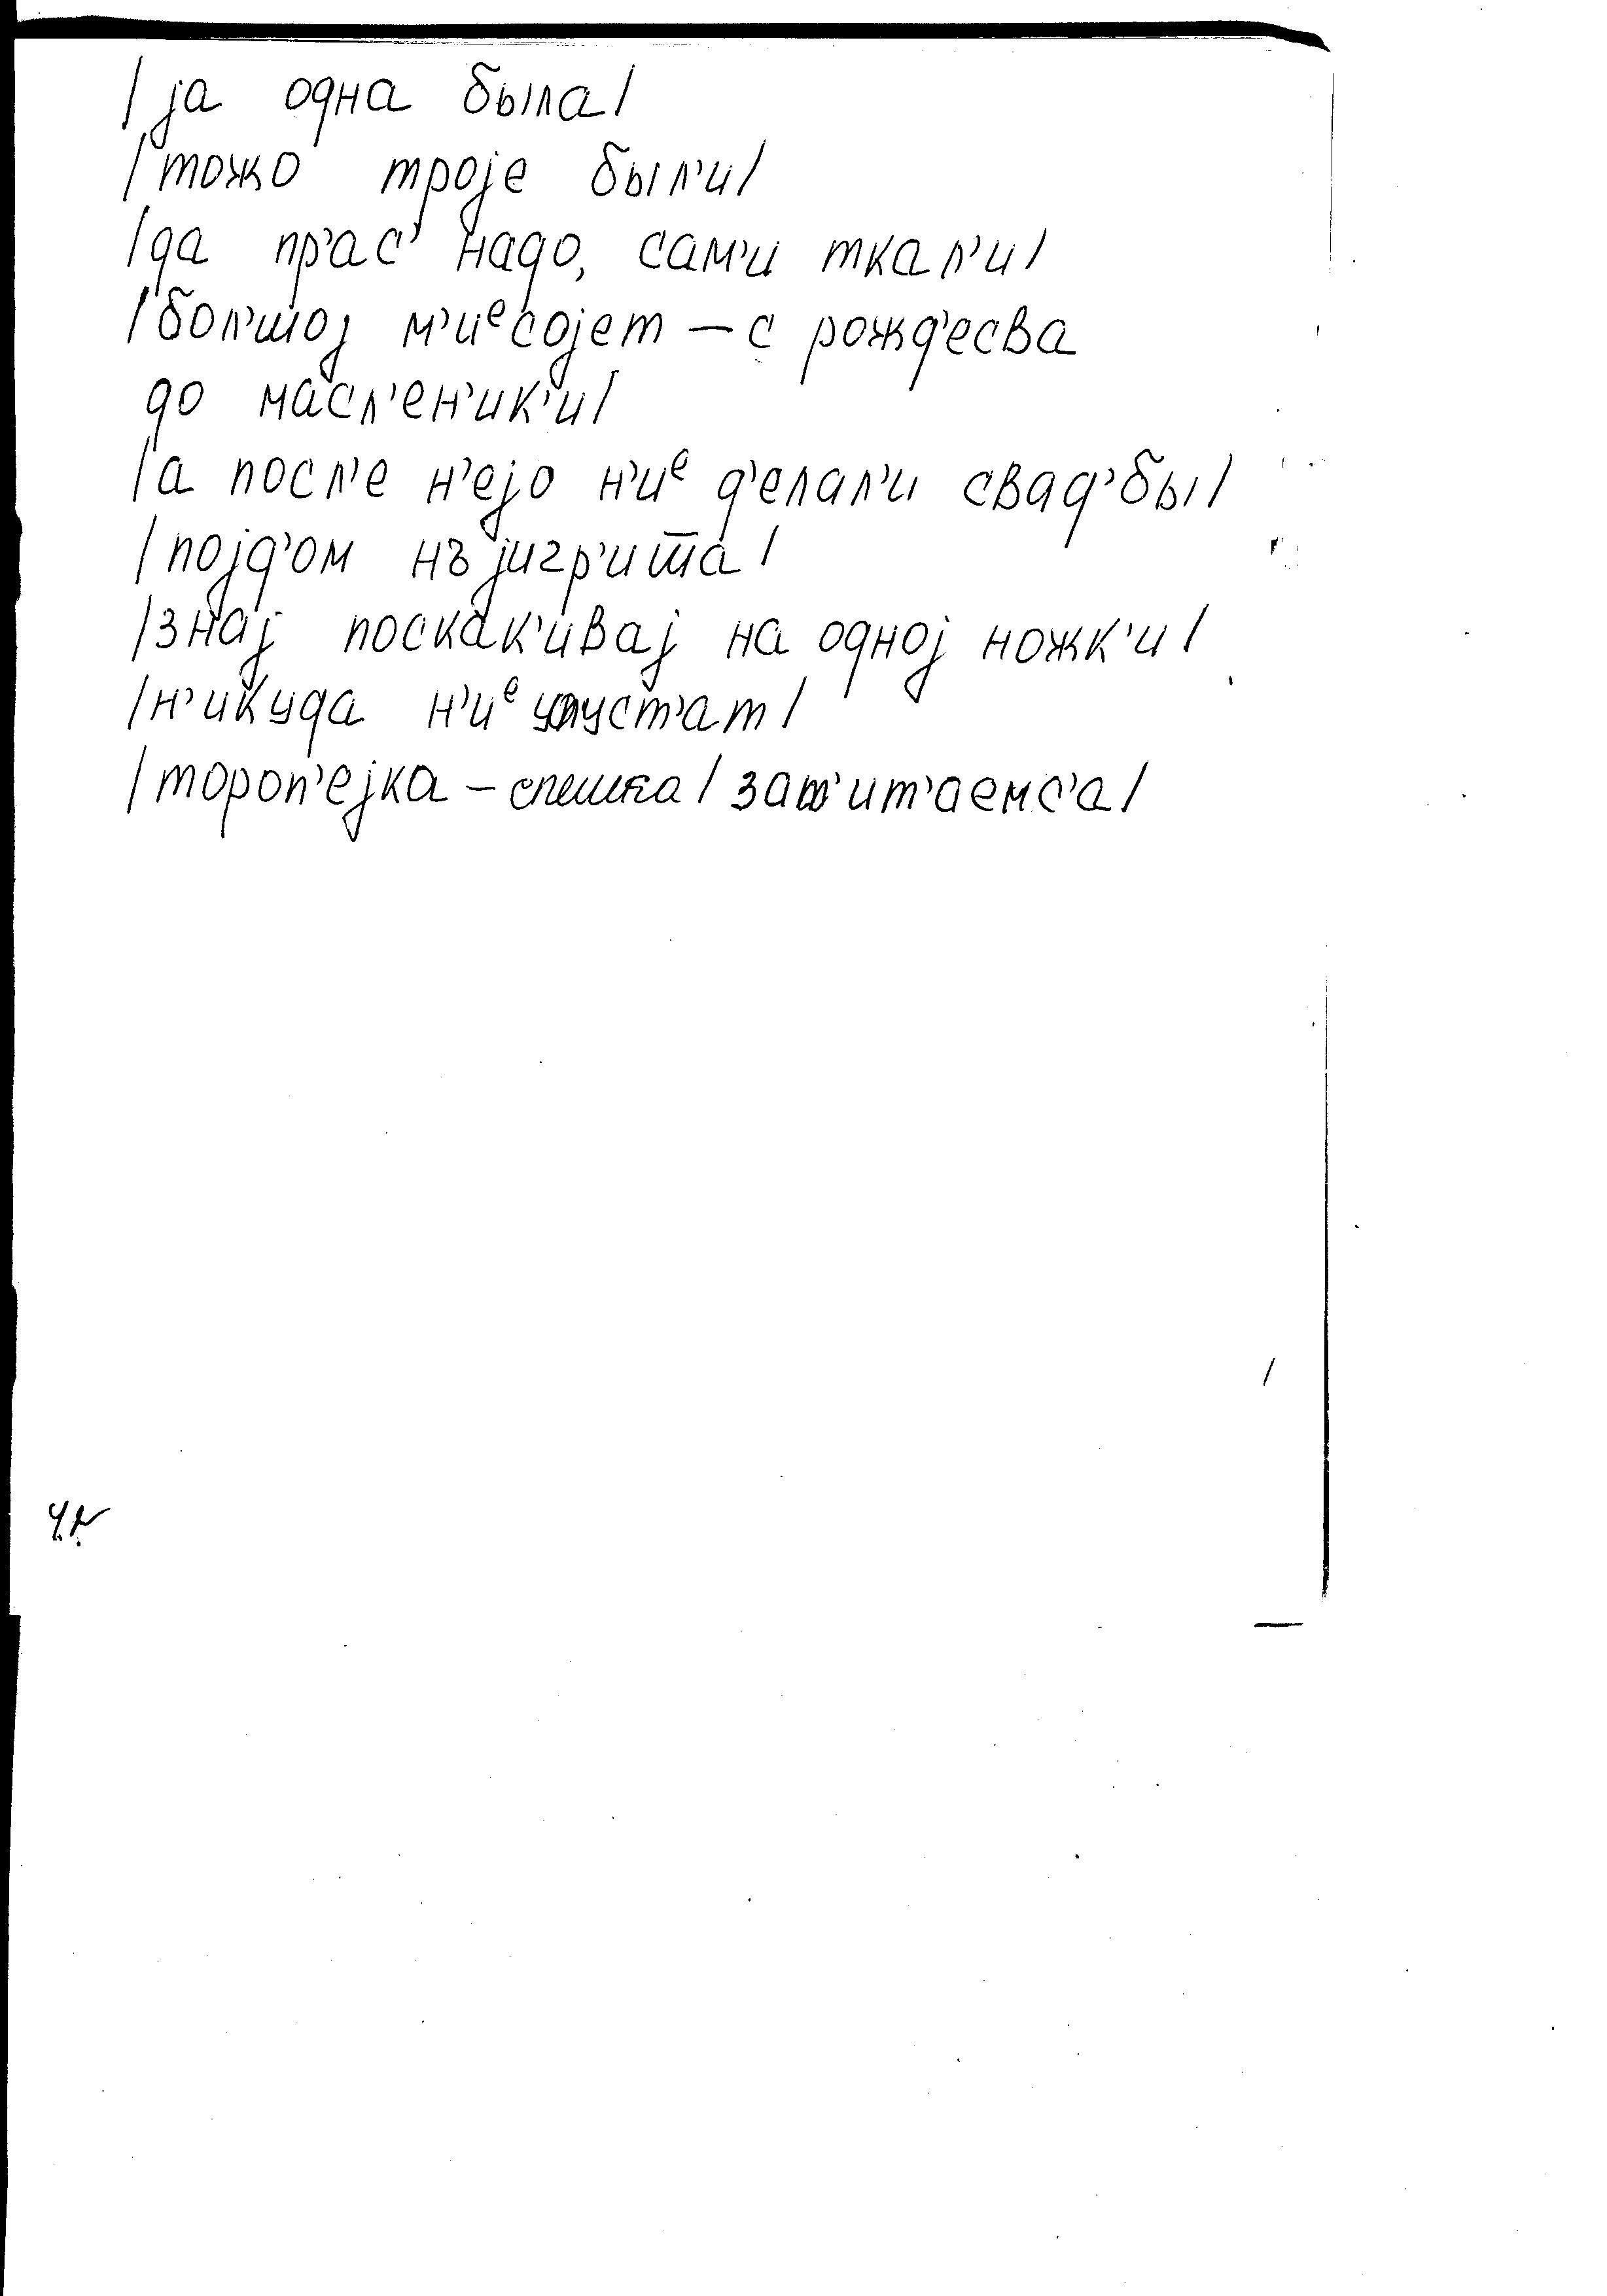 /ја одна была/
/тожо троје был'и/
/да пр'ас' надо, сам'и ткал'и/
/бол'шој м'иᵉсојет – с рожд'есва
до масл'ен'ик'и/
/а посл'е н'ејо н'иᵉ д'елал'и свад'бы/
/појд'ом нъ јигр'ишша/
/знај поскак'ивај на одној ножк'и/
/н'икуда н'иᵉ упуст'ат/
/тороп'ејка – спешка/